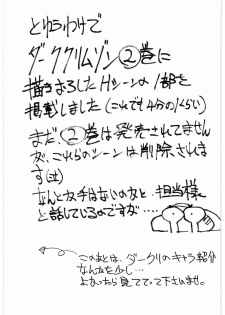 とゆうわけで
ダーククリムゾン②巻に
描きおろしたHシーンの1部を
掲載しました(これでも4分の1くらい)
まだ、②巻は発売されてません
が、これらのシーンは削除されま
す(泣)
なんとか手はないのかと、担当様
と話しているのですが‥‥
このあとは、ダークリのキャラ紹介
なんかを少し…
よかったら見てやって下さいませ。